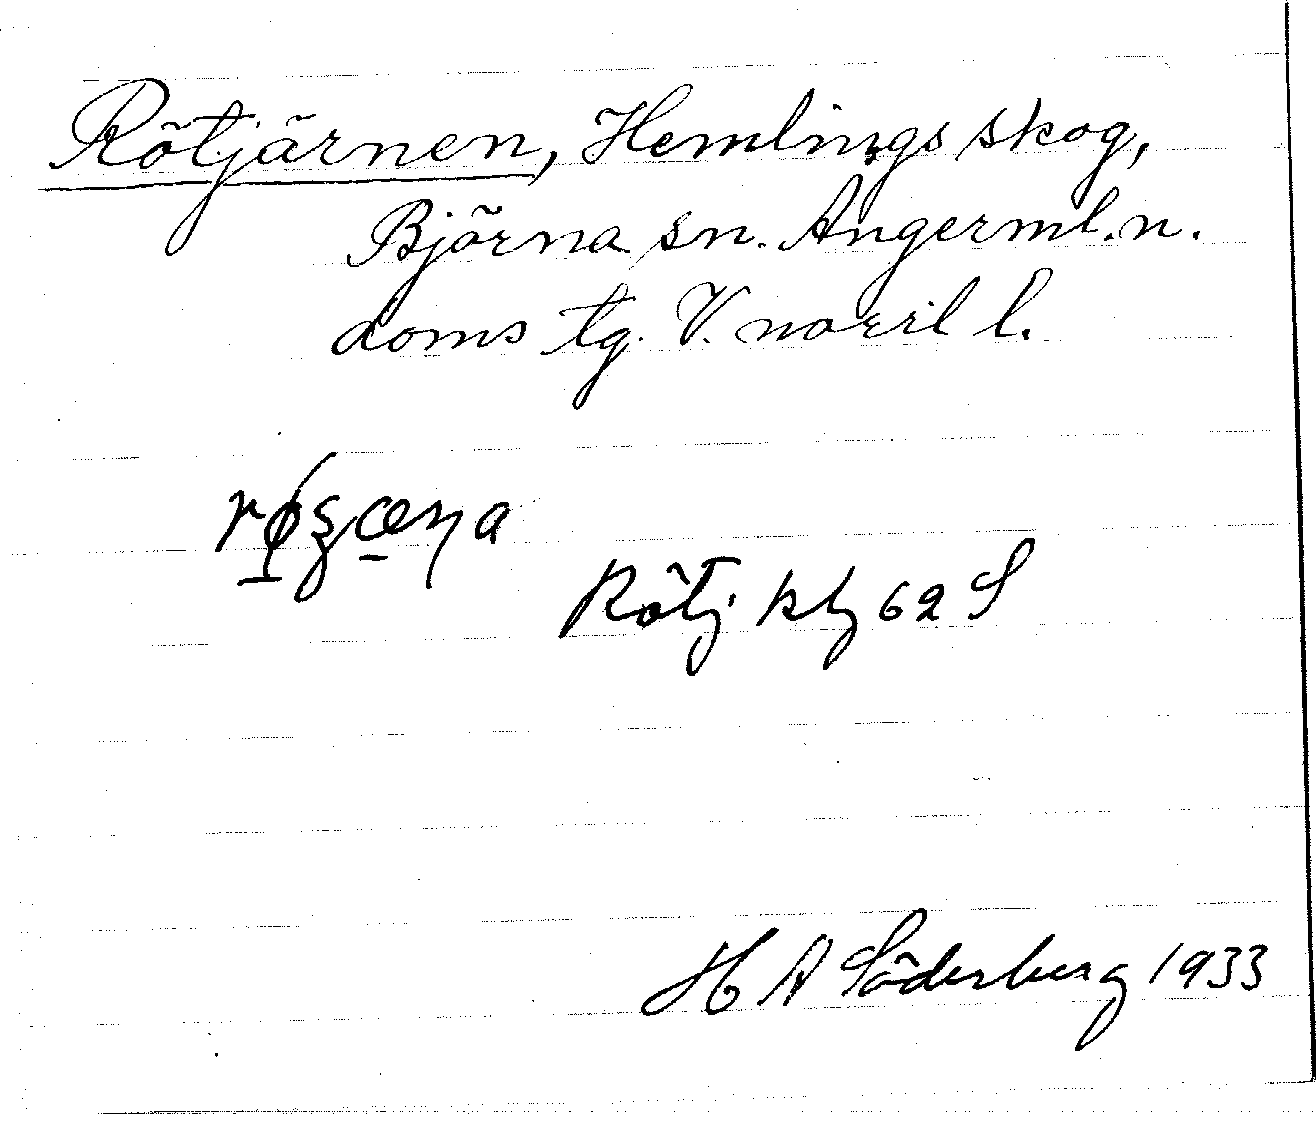 Rötjärnen, Hemlings skog,
Björna sn. Ångerml. n.
doms tg. V. norrl l.
Rötj. kbl 62 S
H A Söderberg 1933